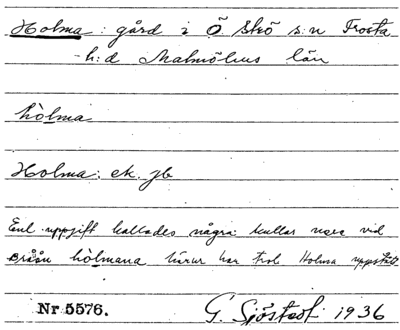 Holma: gård i Ö Skö s:n Frosta
h:d Malmöhus län
hòlma
Holma: ek. jb
Enl uppgift kallades några kullar nere vid
Bråån hòlmana härur har trol Holma uppstått.
Nr 5576.
G. Sjöstedt 1936